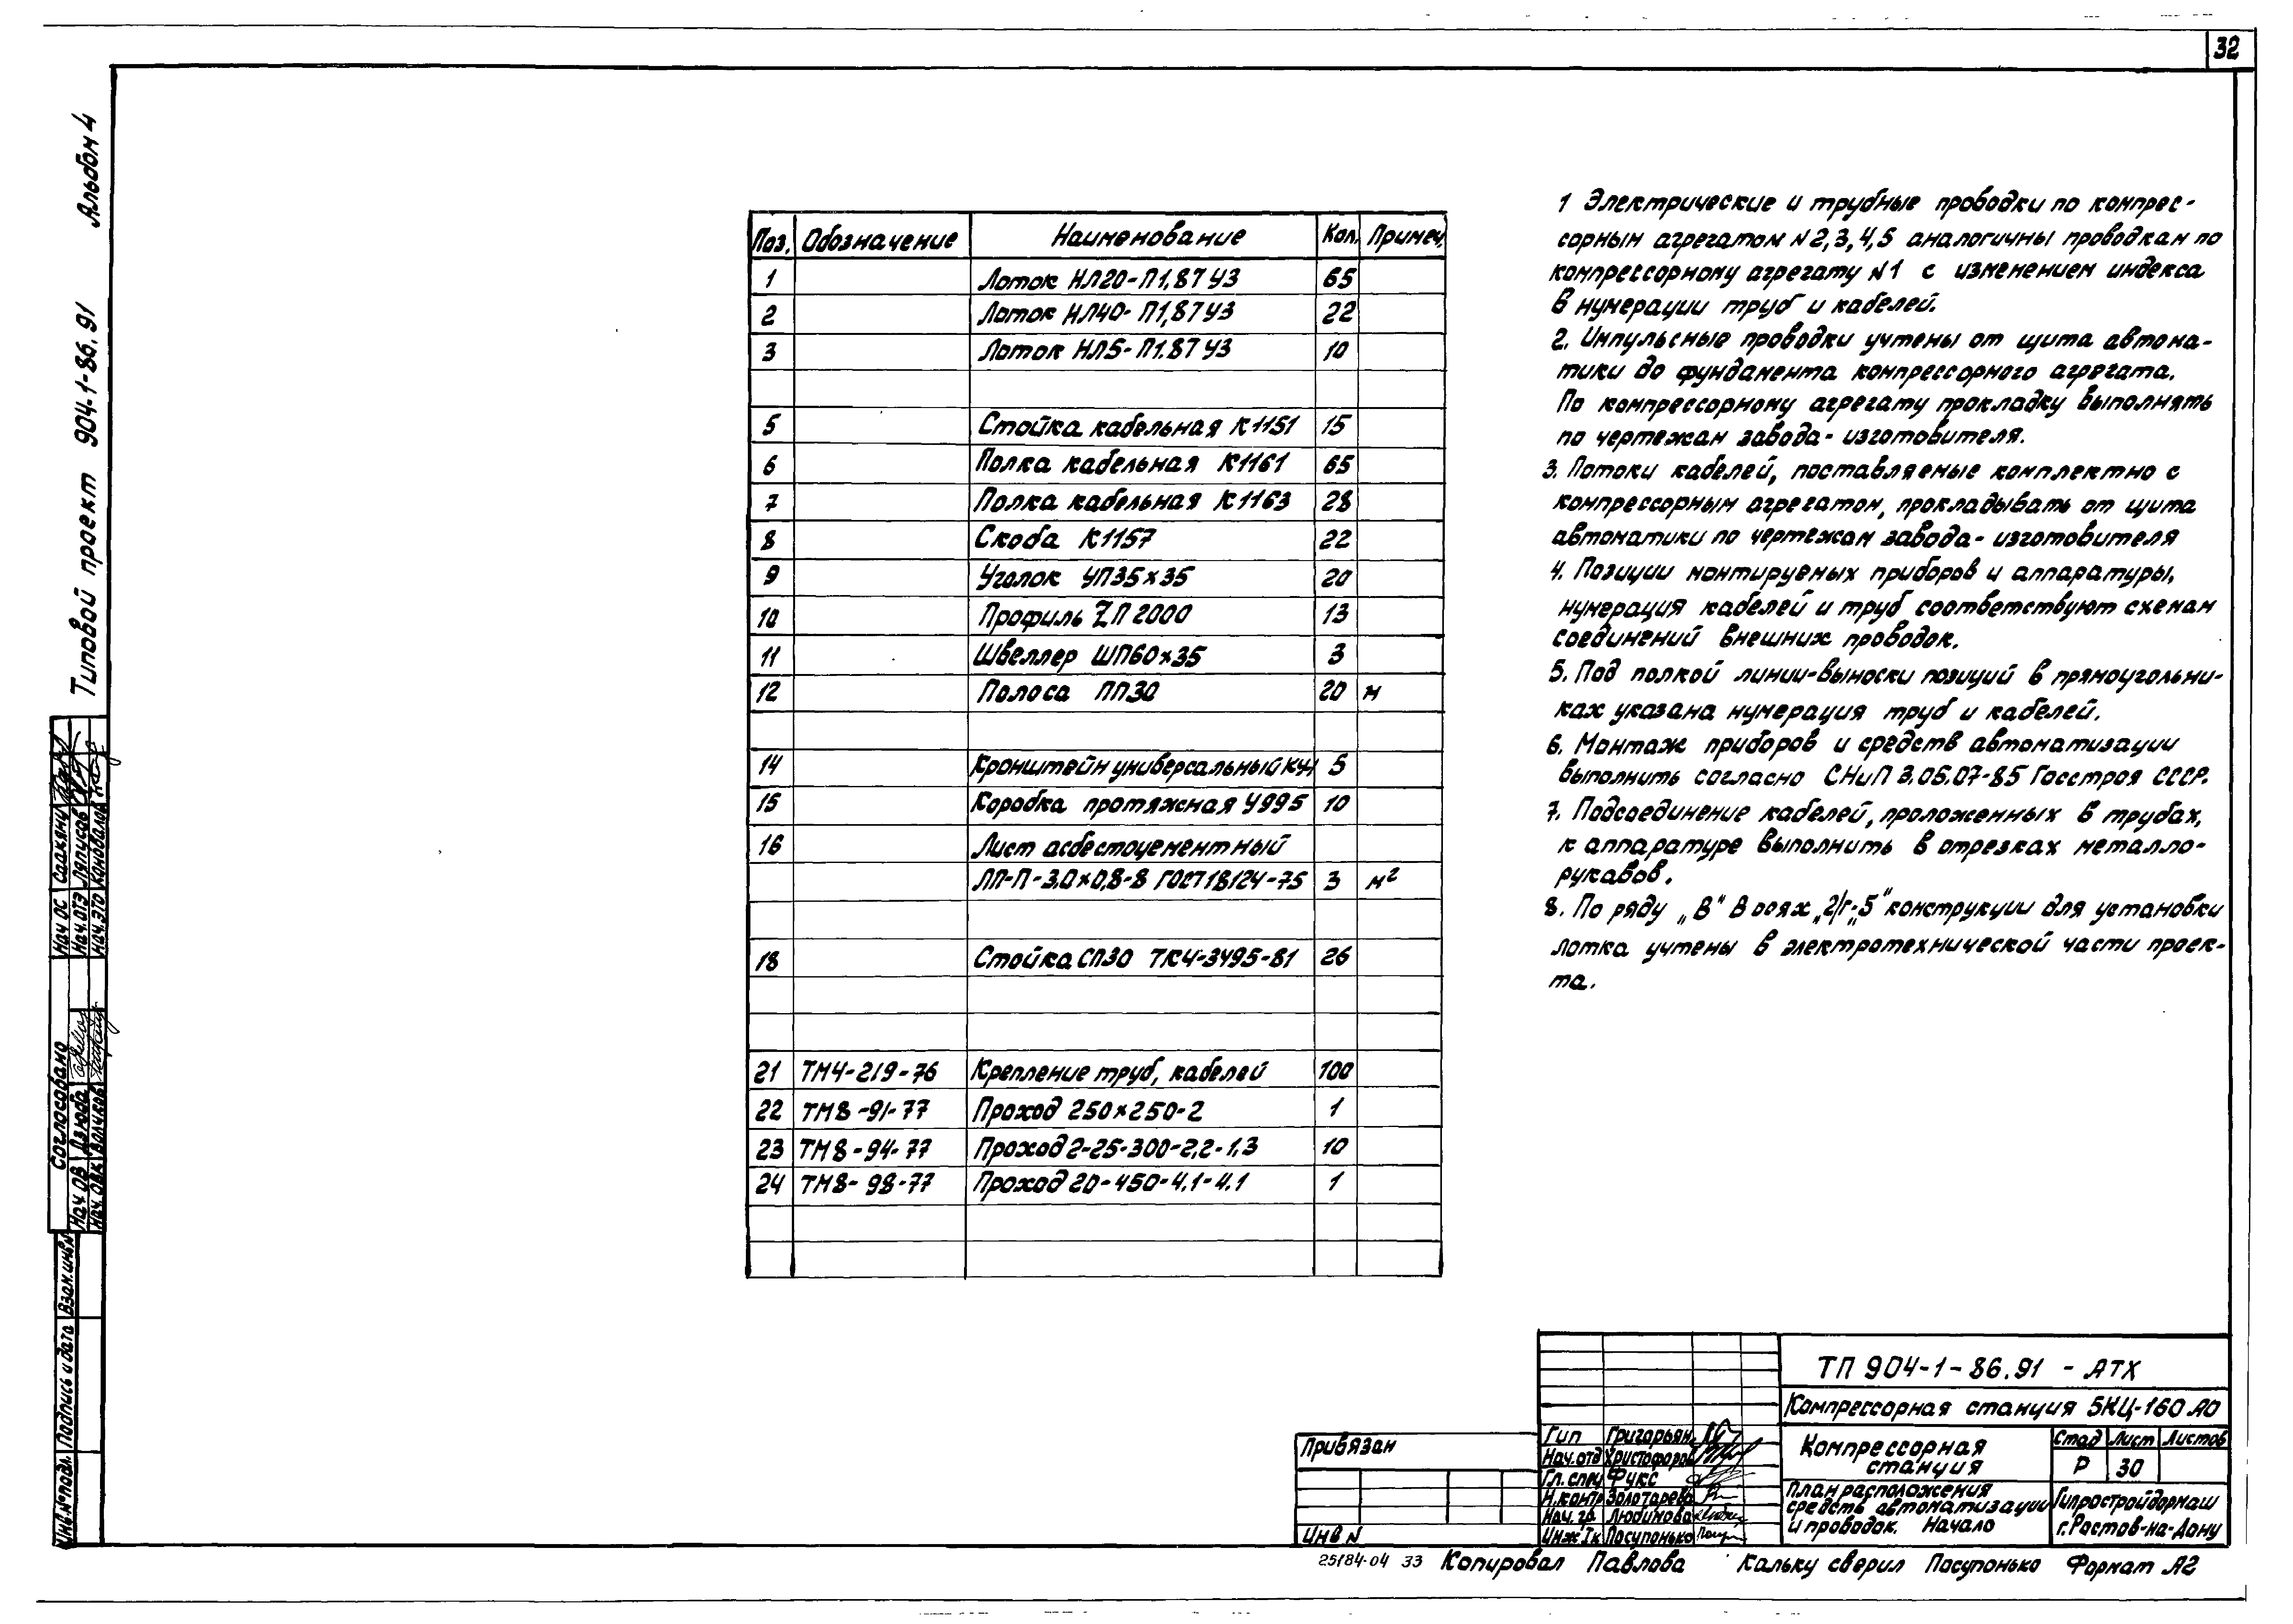 32
Альбом 4
Типовой проект 904-1-86.91
Поз. Обозначение Наименование Кол. Примеч.
1 Лоток НЛ20-П1,87У3 65
2 Лоток НЛ40-П1,87У3 22
3 Лоток НЛ5-П1.87У3 10
5 Стойка кабельная К1151 15
6 Полка кабельная К1161 65
7 Полка кабельная К1163 28
8 Скоба К1157 22
9 Уголок УП35х35 20
10 Профиль ZП2000 13
11 Швеллер ШП60х35 3
12 Полоса ПП30 20 м
14 Кронштейн универсальный КУ-1 5
15 Коробка протяжная У995 10
16 Лист асбестоцементный
ЛП-П-3,0х0,8-8 ГОСТ 18124-75 3 м²
18 Стойка СП30 ТК4-3495-81 26
21 ТМ4-219-76 Крепление труб, кабелей 100
22 ТМ8-91-77 Проход 250х250-2 1
23 ТМ8-94-77 Проход 2-25-300-2,2-1,3 10
24 ТМ8-98-77 Проход 20-450-4.1-4.1 1
1 Электрические и трубные проводки по компрес-
сорным агрегатом N2,3,4,5 аналогичны проводкам по
компрессорному агрегату N1 с изменением индекса
в нумерации труб и кабелей.
2. Импульсные проводки учтены от щита автома-
тики до фундамента компрессорного агрегата.
По компрессорному агрегату прокладку выполнять
по чертежам завода-изготовителя.
3. Потоки кабелей, поставляемые комплектно с
компрессорным агрегатом, прокладывать от щита
автоматики по чертежам завода-изготовителя
4. Позиции монтируемых приборов и аппаратуры,
нумерация кабелей и труб соответствуют схемам
соединений внешних проводок.
5. Под полкой линии-выноски позиций в прямоугольни-
ках указана нумерация труб и кабелей.
6. Монтаж приборов и средств автоматизации
выполнить согласно СНиП 3.05.07-85 Госстроя СССР.
7. Подсоединение кабелей, проложенных в трубах,
к аппаратуре выполнить в отрезках металло-
рукавов.
8. По ряду „В" в осях „2/г-5" конструкции для установки
лотка учтены в электротехнической части проек-
та.
Согласовано
Нач ОС Саакянц
Нач.ОТЭ Ляпусов
Нач.ЭТО Коновалов
Нач ОВ Дзюба
Нач.ОВК Волчков
Инв.№ подл. Подпись и дата Взам.инв.N
ТП 904-1-86.91 -АТХ
Компрессорная станция 5КЦ-160 АО
Привязан
Инв N
Гип Григорьян
Нач.отд Христофоров
Гл.спец Фукс
Н.контр Золотарева
Нач.гр Любимова
Инж Iк Посупонько
Компрессорная
станция
Стад Лист Листов
Р 30
План расположения
средств автоматизации
и проводок. Начало
Гипростройдормаш
г.Ростов-на-Дону
25184-04 33 Копировал Павлова Кальку сверил Посупонько Формат А2